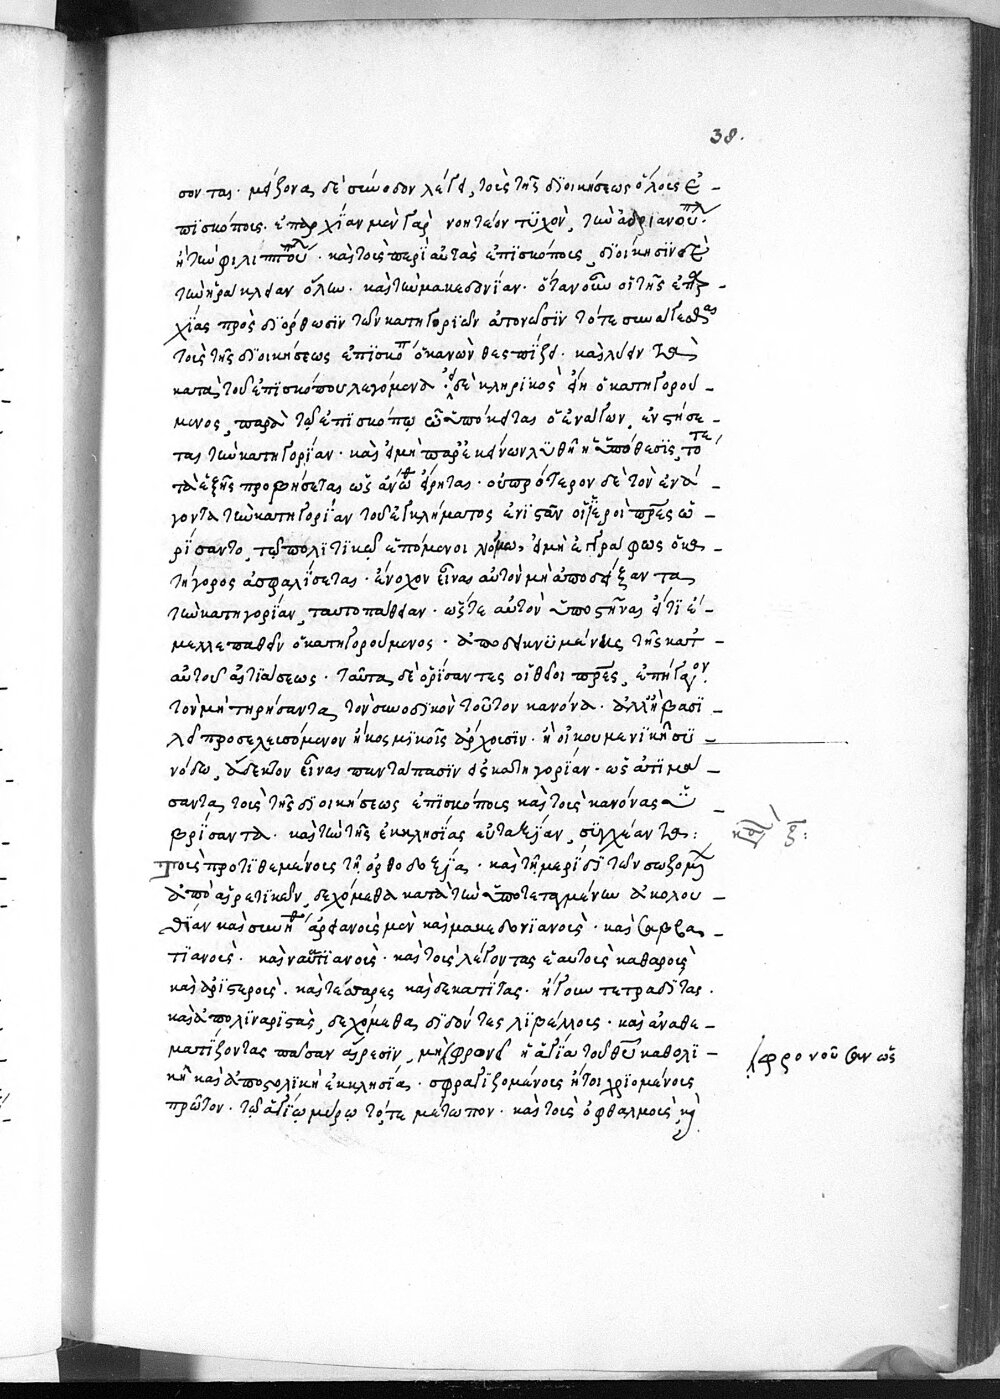 38.
σοντας· μείζονα δὲ σύνοδον λέγει, τοὺς τῆς διοικήσεως ὅλους ἐ-
πισκόπους. ἐπαρχίαν μὲν γὰρ νοητέον τυχὸν, τὴν ἀδριανουπλ.
ἢ τὴν φιλιππουπλ· καὶ τοὺς περὶ αὐτὰς ἐπισκόπους, διοίκησιν δὲ
τὴν θρακικὴν ὅλην· καὶ τὴν μακεδονίαν· ὅταν οὖν οἱ τῆς ἐπαρ-
χίας πρὸς διόρθωσιν τῶν κατηγοριῶν ἀτονῶσιν τότε συναγεσθαι
τοὺς τῆς διοικήσεως ἐπισκοπ ὁ κανὼν θεσπίζει· καὶ λύειν τὰ
κατὰ τοῦ ἐπισκόπου λεγόμενα· εἰ δὲ κληρικὸς εἴη ὁ κατηγορού-
μενος, παρὰ τῷ ἐπισκόπῳ ᾧ ὑπόκειται ὁ ἐνάγων, ἐνστήσε-
ται τὴν κατηγορίαν· καὶ εἰ μὴ παρ' ἐκείνων λυθῇ ἡ ὑπόθεσις, τότε
τὰ ἑξῆς προβήσεται ὡς ἄνωθ εἴρηται· οὐ πρότερον δὲ τὸν ἐνά-
γοντα τὴν κατηγορίαν τοῦ ἐγκλήματος ἐνιστᾶν οἱ ἱεροὶ πρες ὡ-
ρίσαντο, τῷ πολιτικῷ ἑπόμενοι νόμῳ, εἰ μὴ ἐγγράφως ὁ κα-
τήγορος ἀσφαλίσεται· ἔνοχον εἶναι αὐτὸν μὴ ἀποδείξαντα
τὴν κατηγορίαν, ταυτοπάθειαν· ὥστε αὐτὸν ὑποστῆναι εἴ τι ἔ-
μελλε παθεῖν ὁ κατηγορούμενος· ἀποδεικνυμένης τῆς κατ'
αὐτοῦ αἰτιάσεως· ταῦτα δὲ ὁρίσαντες οἱ θεῖοι πρες, ἐπήγαγον.
τὸν μὴ τηρήσαντα τὸν συνοδικὸν τοῦτον κανόνα· ἀλλ' ἢ βασι-
λεῖ προσελευσόμενον ἢ κοσμικοῖς ἄρχουσιν· ἢ οἰκουμενικῇ συ-
νόδω, ἄδεκτον εἶναι παντάπασιν εἰς κατηγορίαν· ὡς ἀτιμά-
σαντα τοὺς τῆς διοικήσεως ἐπισκόπους καὶ τοὺς κανόνας ὑ-
βρίσαντα· καὶ τὴν τῆς ἐκκλησίας εὐταξίαν, συγχέαντα:
κα ζ:
Τοὺς προτιθεμένους τῇ ὀρθοδοξίᾳ· καὶ τῇ μερίδι τῶν σωζομ
ἀπὸ αἱρετικῶν, δεχόμεθα κατὰ τὴν ὑποτεταγμένην ἀκολου-
θίαν καὶ συνηθ' ἀρειανοὺς μὲν καὶ μακεδονιανοὺς· καὶ σαββα-
τιανοὺς· καὶ ναυατιανοὺς· καὶ τοὺς λέγοντας ἑαυτοὺς καθαροὺς
καὶ ἀριστεροὺς· καὶ τέσσαρες καὶ δεκατίτας· ἤγουν τετραδίτας·
καὶ ἀπολιναριστάς, δεχόμεθα, διδόντες λιβέλλους· καὶ ἀναθε-
ματίζοντας πᾶσαν αἵρεσιν, μὴ φρον ἡ ἁγία τοῦ θυ καθολι-
φρονοῦσαν ὡς
κὴ καὶ ἀποστολικὴ ἐκκλησία· σφραγιζομένους ἤτοι χριομένους
πρῶτον· τῷ ἁγίῳ μύρῳ τό, τε μέτωπον· καὶ τοὺς ὀφθαλμοὺς καὶ